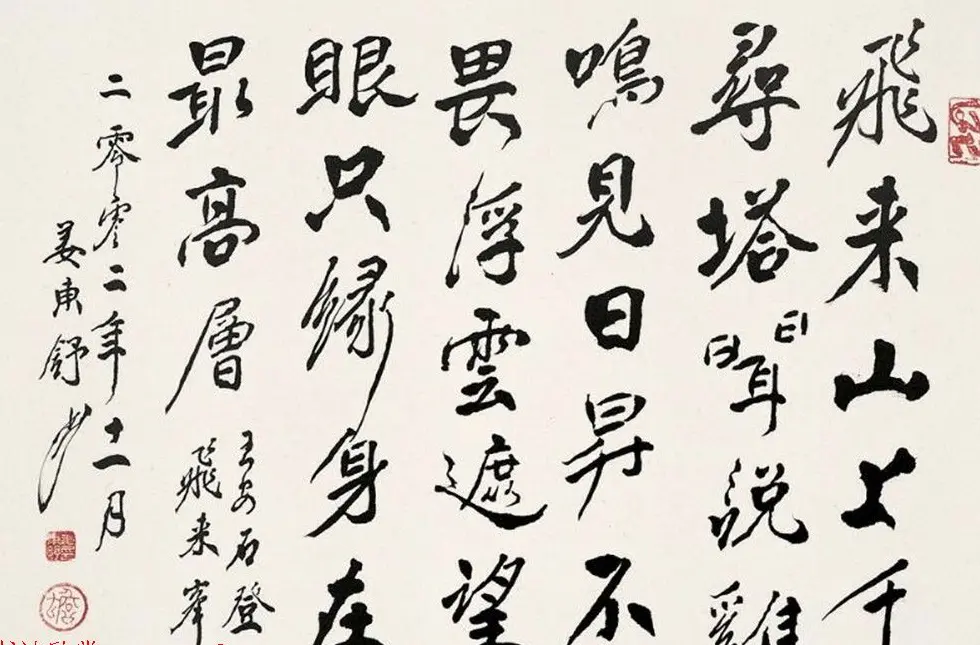 飛来山上千
尋塔聞說雞
鳴見日昇不
畏浮雲遮望
眼只緣身在
最高層
王安石登
飛来峯
二零零二年十一月
姜東舒書